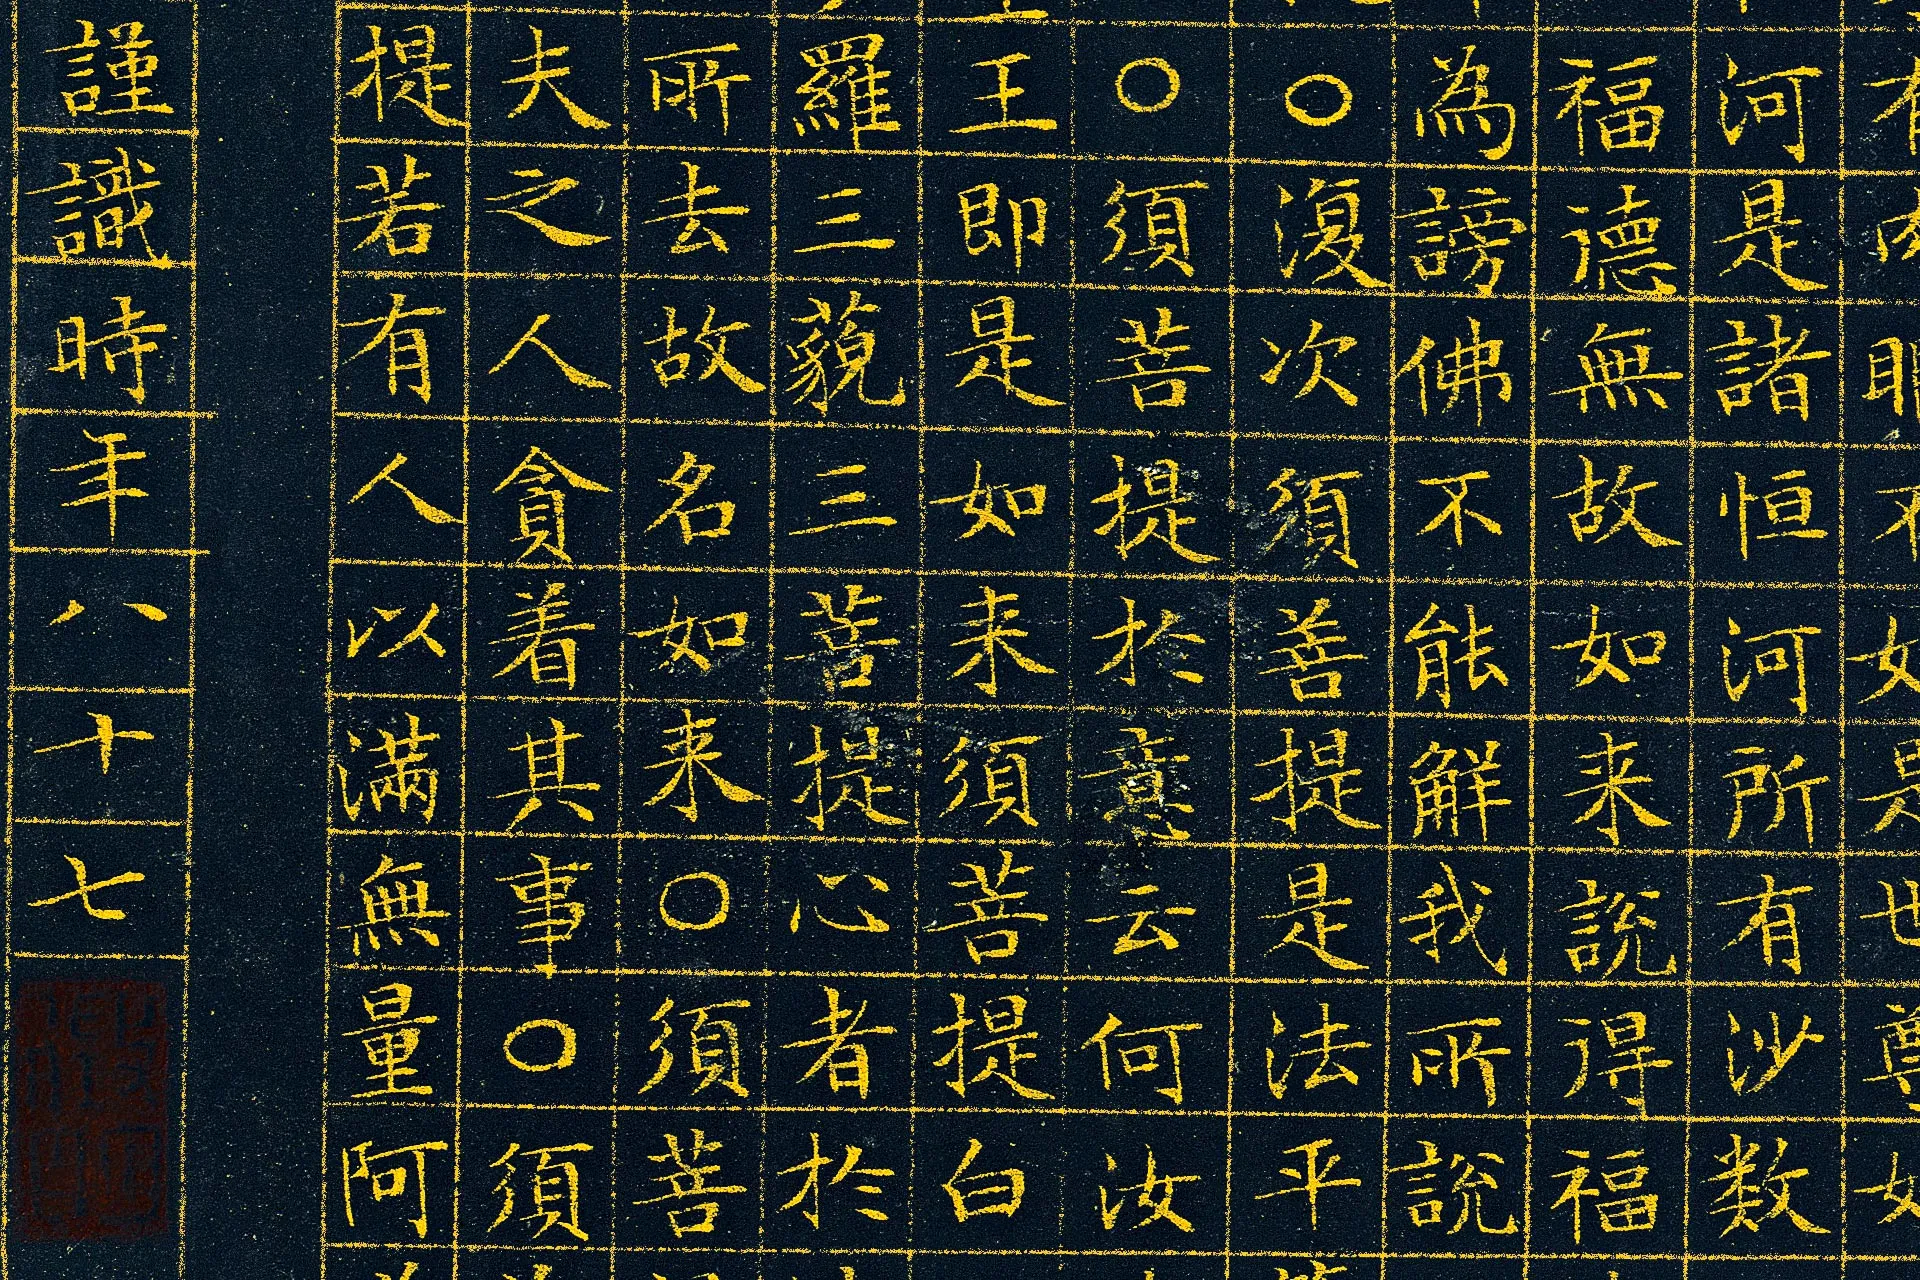 有肉眼不如是世尊如
河是諸恒河所有沙数
福德無故如来說得福
為謗佛不能解我所說
○復次須菩提是法平
○須菩提於意云何汝
王即是如来須菩提白
羅三藐三菩提心者於
所去故名如来○須菩
夫之人貪着其事○須
提若有人以滿無量阿
謹識時年八十七